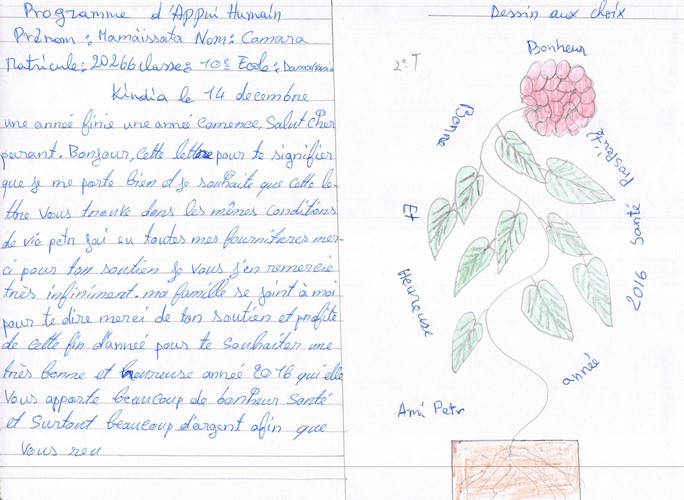 Programme d'Appui Humain
Prénom : Mamaïssata Nom : Camara
Matricule : 20266 classe : 10e Ecole : Damakania
Kindia le 14 decembre
une année finie une année comence, Salut cher
parant. Bonjour, cette lettre pour te signifier
que je me porte bien et je souhaite que cette le-
ttre vous trouve dans les mêmes conditions
de vie petr j'ai eu toutes mes fournitures mer-
ci pour ton soutien je vous s'en remercie
très infiniment. ma famille se joint à moi
pour te dire merci de ton soutien et profite
de cette fin d'année pour te souhaiter une
très bonne et heureuse année 2016 qui elle
Vous apporte beaucoup de bonheur Santé
et Surtout beaucoup d'argent afin que
Vous reu
Dessin aux choix
2e T
Bonheur
Bonne
Prospérité
Et
Santé
Heureuse
2016
année
Ami Petr